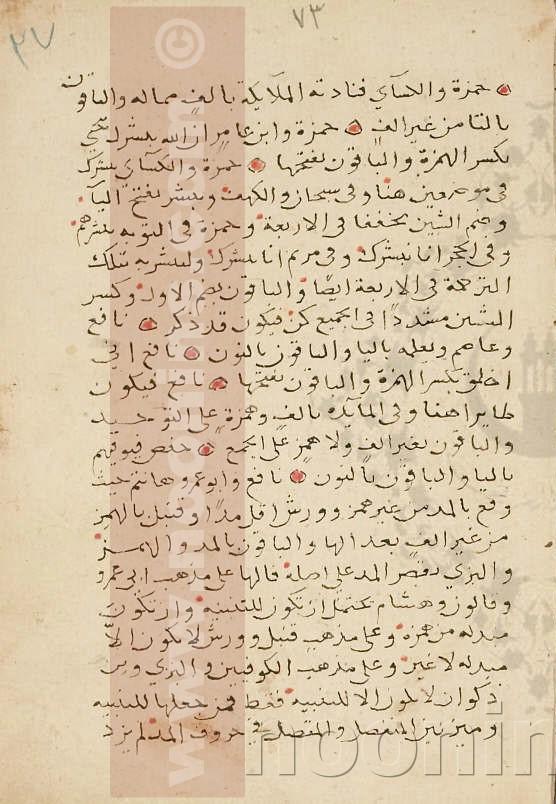 ٧٣
٣٧
حمزة والكسآي فنادته الملايكة بالف مماله والباقون
بالتا من غير الف حمزة وابن عامر ان الله يبشرك بيحيى
بكسر الهمزة والباقون بفتحها حمزة والكسآي يبشرك
في موضعين هنا وفي سبحان والكهف ويبشر بفتح اليا
وضم الشين مخففا في الاربعة وحمزة في التوبه يبشرهم
وفي الحجر انا نبشرك وفي مريم انا نبشرك ولتبشر به بتلك
الترجمة في الاربعة ايضا والباقون بضم الاول وكسر
الشين مشددا في الجميع كن فيكون قد ذكر نافع
وعاصم ويعلمه باليا والباقون بالنون نافع اني
اخلق بكسر الهمزة والباقون بفتحها نافع فيكون
طايرا هنا وفي المايده بالف وهمزة على التوحيد
والباقون بغير الف ولا همز على الجمع حفص فيوفيهم
باليا والباقون بالنون نافع وابو عمرو هانتم حيث
وقع بالمد من غير همز وورش اقل مدا وقنبل بالهمز
من غير الف بعد الها والباقون بالمد والهمز
والبزي يقصر المد على اصله فالها على مذهب ابي عمرو
وقالون وهشام يحتمل ان تكون للتنبيه وان تكون
مبدله من همزة وعلى مذهب قنبل وورش لا تكون الا
مبدله لا غير وعلى مذهب الكوفيين والبزي وبن
ذكوان لا تكون الا للتنبيه فقط فمن جعلها للتنبيه
وميز بين المنفصل والمتصل في حروف المد لم يزد
www.noormags.com
noormags